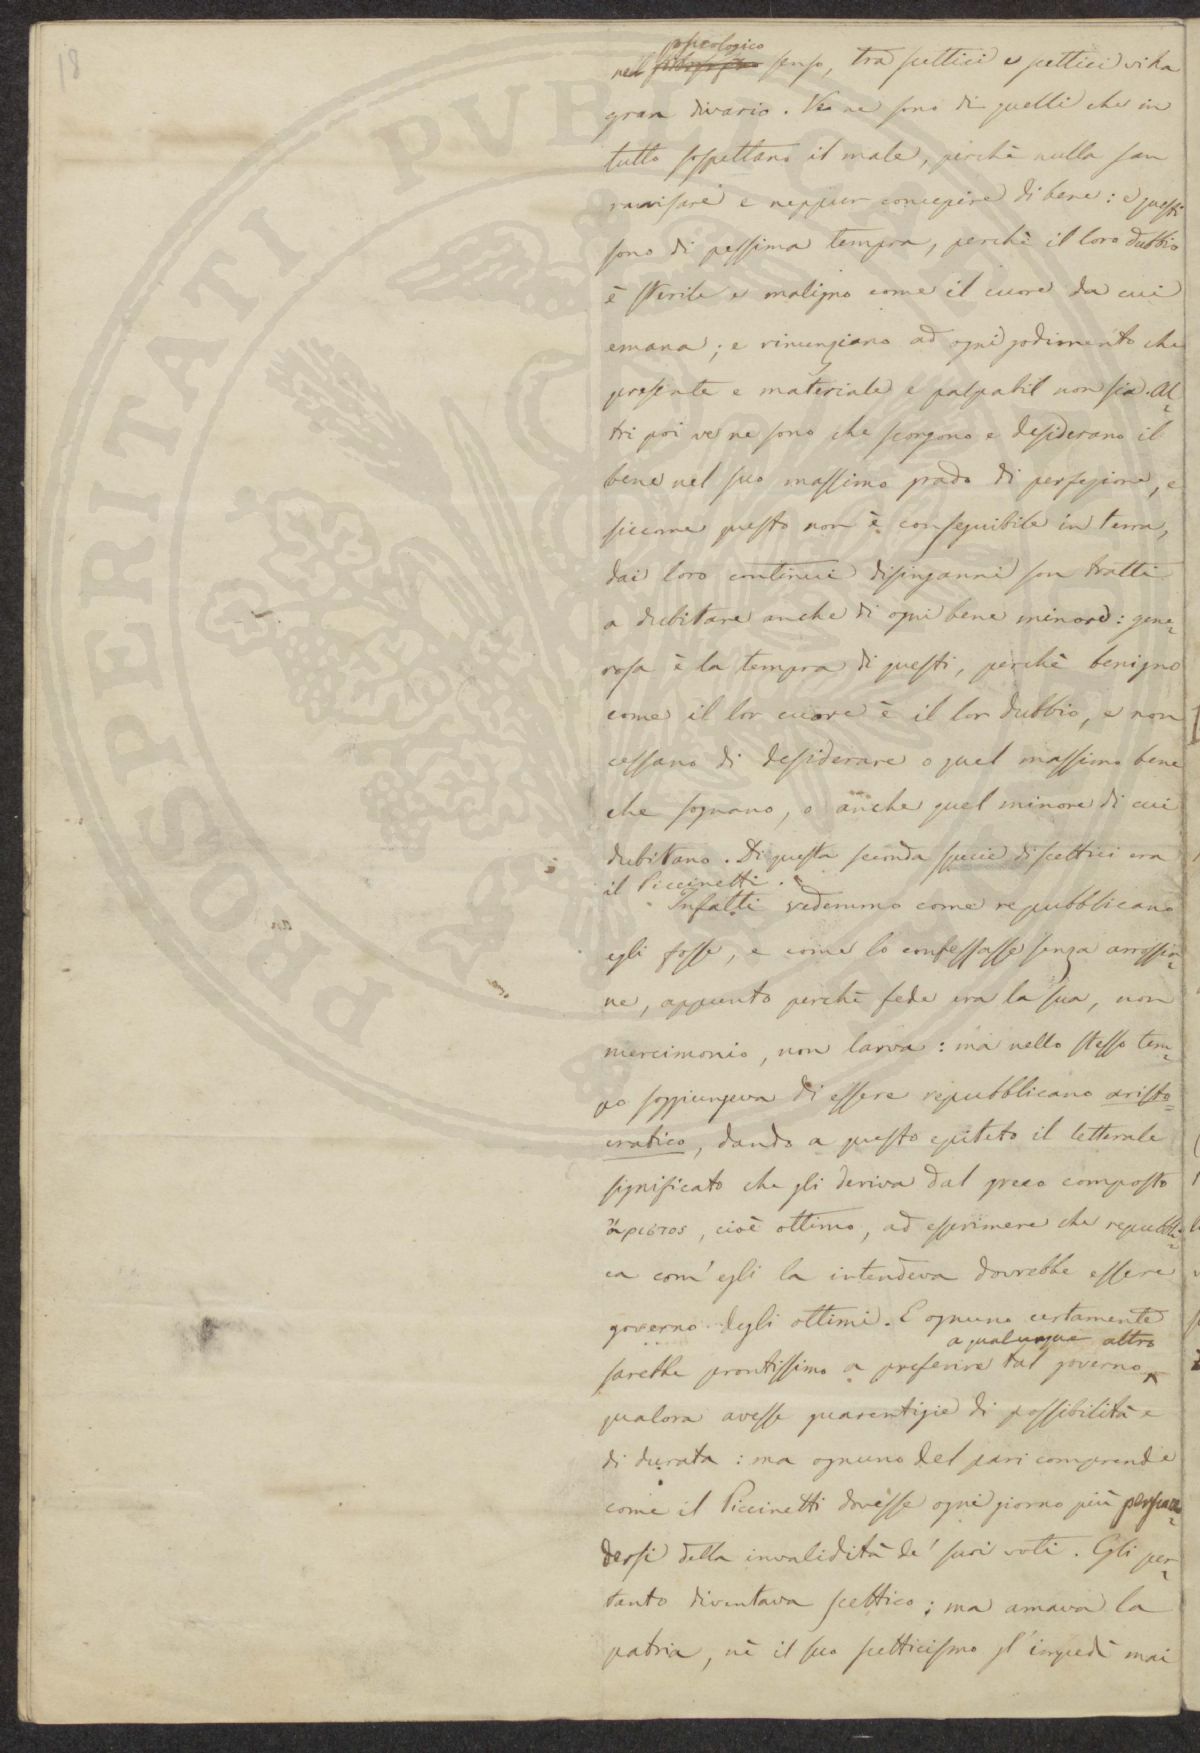 18
psicologico
nel senso, tra scettici e scettici vi ha
gran divario. Ve ne sono di quelli che in
tutto sospettano il male, perchè nulla san
ravvisare e neppur concepire di bene: e questi
sono di pessima tempra, perchè il loro dubbio
è sterile e maligno come il cuore da cui
emana; e rinunziano ad ogni godimento che
presente e materiale e palpabil non sia. Al=
tri poi ve ne sono che scorgono e desiderano il
bene nel suo massimo grado di perfezione, e
siccome questo non è conseguibile in terra,
dai loro continui disinganni son tratti
a dubitare anche di ogni bene minore: gene=
rosa è la tempra di questi, perchè benigno
come il lor cuore è il lor dubbio, e non
cessano di desiderare o quel massimo bene
che sognano, o anche quel minore di cui
dubitano. Di questa seconda specie di scettici era
il Piccinetti.
Infatti vedemmo come repubblicano
egli fosse, e come lo confessasse senza arrossir=
ne, appunto perchè fede era la sua, non
mercimonio, non larva: ma nello stesso tem=
po soggiungeva di essere repubblicano aristo=
cratico, dando a questo epiteto il letterale
significato che gli deriva dal greco composto
ἄριστος, cioè ottimo, ad esprimere che repubbli=
ca com' egli la intendeva dovrebbe essere
governo degli ottimi. E ognuno certamente
a qualunque altro
sarebbe prontissimo a preferire tal governo
qualora avesse guarentigie di possibilità e
di durata: ma ognuno del pari comprende
come il Piccinetti dovesse ogni giorno più persua=
dersi della invalidità de' suoi voti. Egli per=
tanto diventava scettico; ma amava la
patria, nè il suo scetticismo gl'impedì mai
PROSPERITATI PVBLICAE